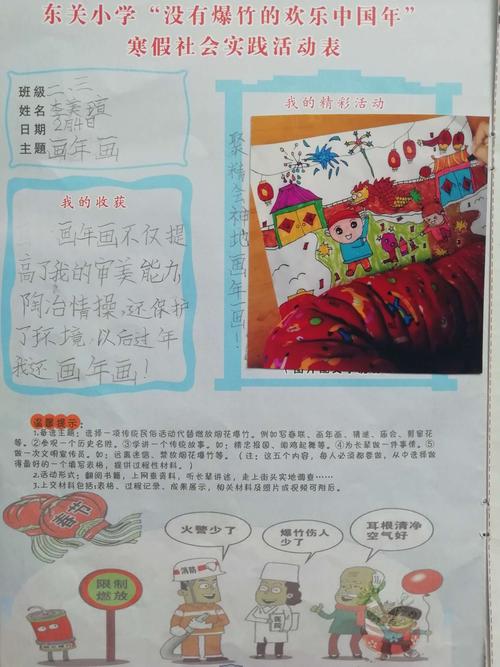 东关小学“没有爆竹的欢乐中国年”
寒假社会实践活动表
班级 二.三
姓名 李美瑄
日期 2月4日
主题 画年画
我的精彩活动
聚精会神地画年画！
我的收获
画年画不仅提
高了我的审美能力,
陶冶情操,还保护
了环境,以后过年
我还画年画！
温馨提示：
1.备选主题：选择一项传统民俗活动代替燃放烟花爆竹。例如写春联、画年画、猜谜、庙会、剪窗花
等。②参观一个历史名胜。③学讲一个传统故事。如：精忠报国、闻鸡起舞等。④为长辈做一件事情。⑤
做一次文明宣传员。如：远离迷信、禁放烟花爆竹等。（注：这五个内容，每人必须都要做，从中选择做
得最好的一个填写表格，提供过程性材料。）
2.活动形式：翻阅书籍，上网查资料，听长辈讲述，走上街头实地调查……
3.上交材料包括：表格、过程记录、成果展示，相关材料及照片或视频可附后。
春节
火警少了
爆竹伤人
少了
耳根清净
空气好
消防
医院
限制
燃放